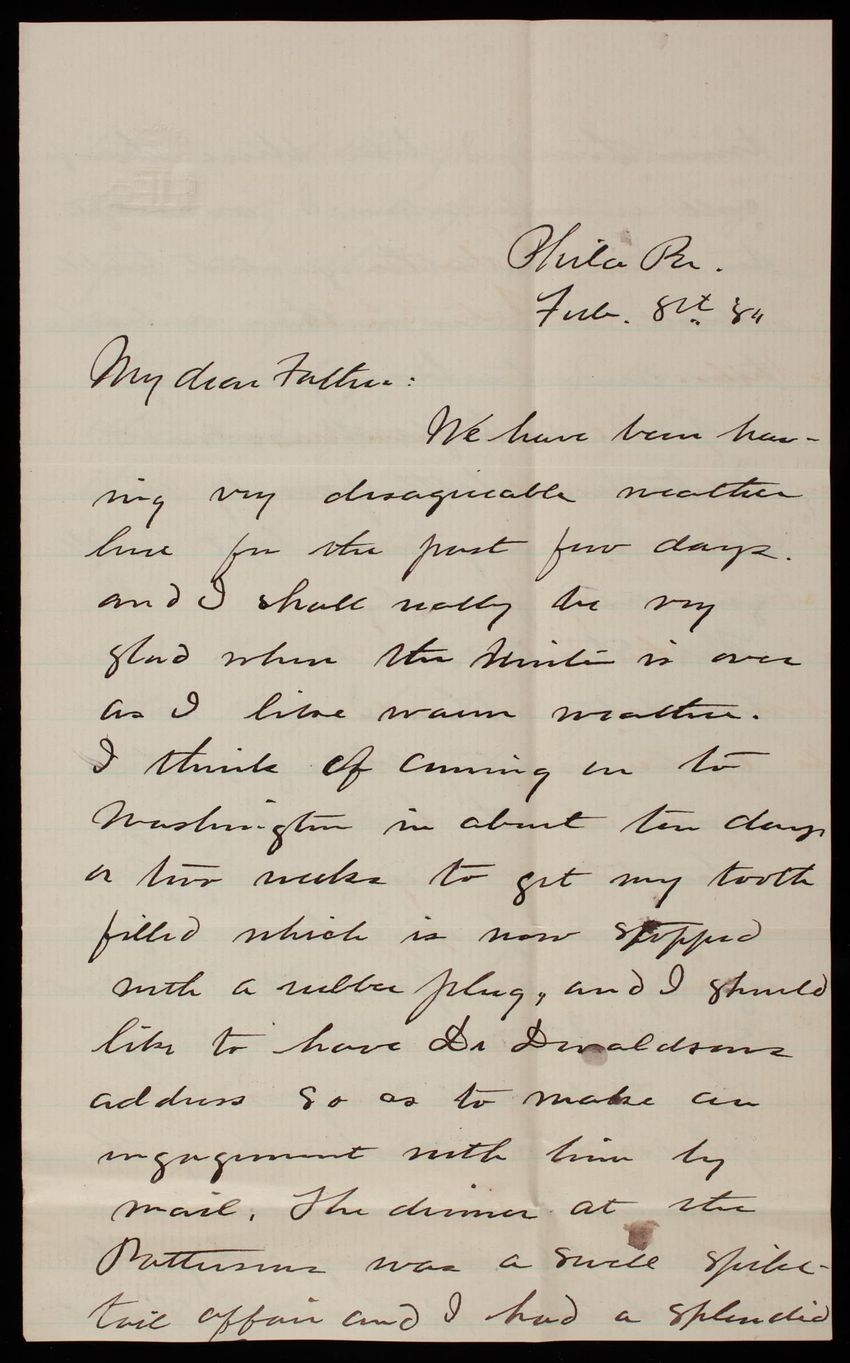 Phila Pa.
Feb. 8st 84
My dear Father:
We have been hav-
ing very disagreeable weather
here for the past few days.
and I shall really be very
glad when the Winter is over
as I like warm weather.
I think of coming on to
Washington in about ten days
or two weeks to get my tooth
filled which is now stopped
with a rubber plug, and I should
like to have Dr Donaldsons
address so as to make an
engagement with him by
mail. The dinner at the
Pattersons was a swell spike-
tail affair and I had a splendid